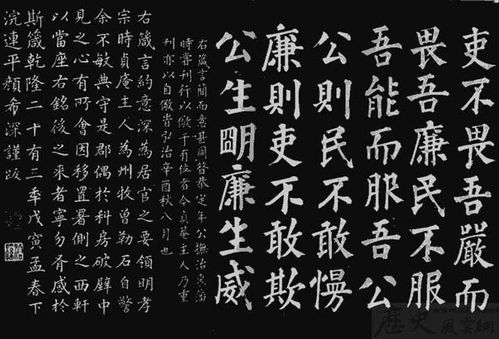 吏不畏吾嚴而
畏吾廉民不服
吾能而服吾公
公則民不敢慢
廉則吏不敢欺
公生明廉生威
右箴言簡而意甚周昔恭定年公撫治
時嘗刊行以儆于有位者今貞菴主人乃重
刊亦以自儆旹弘治辛酉秋八月也
右箴言約意深為居官之要領明孝
宗時貞庵主人為州牧曾勒石自警
余不敏典守是郡偶於科房破壁中
見之心有所會因移置署側之西軒
以當座右銘後之來者寧勿有感於
斯箴乾隆二十有三年戊寅孟春下
浣連平顏希深謹跋
歷史風雲網